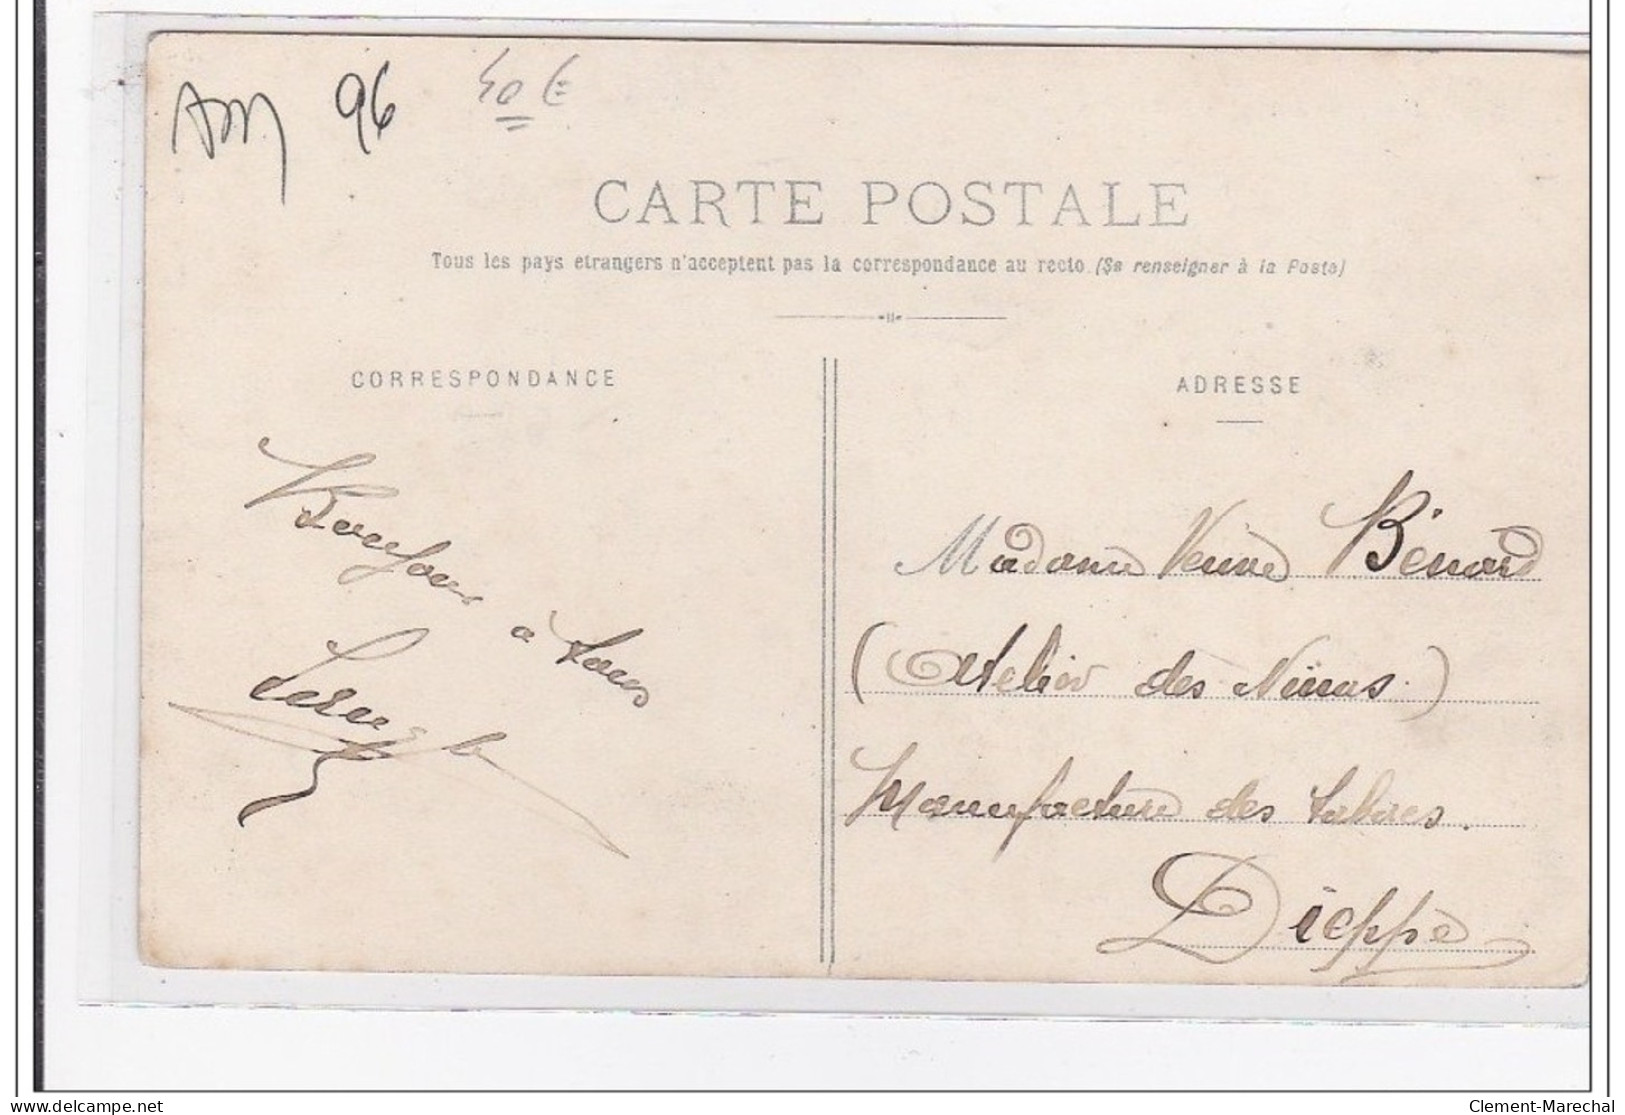 96 40 €
CARTE POSTALE
Tous les pays etrangers n'acceptent pas la correspondance au recto. (Se renseigner à la Poste)
CORRESPONDANCE
Bonjour
à tous
ADRESSE
Madame Veuve Bénard
(Atelier des Ninas)
Manufacture des tabacs.
Dieppe
Clement-Marechal